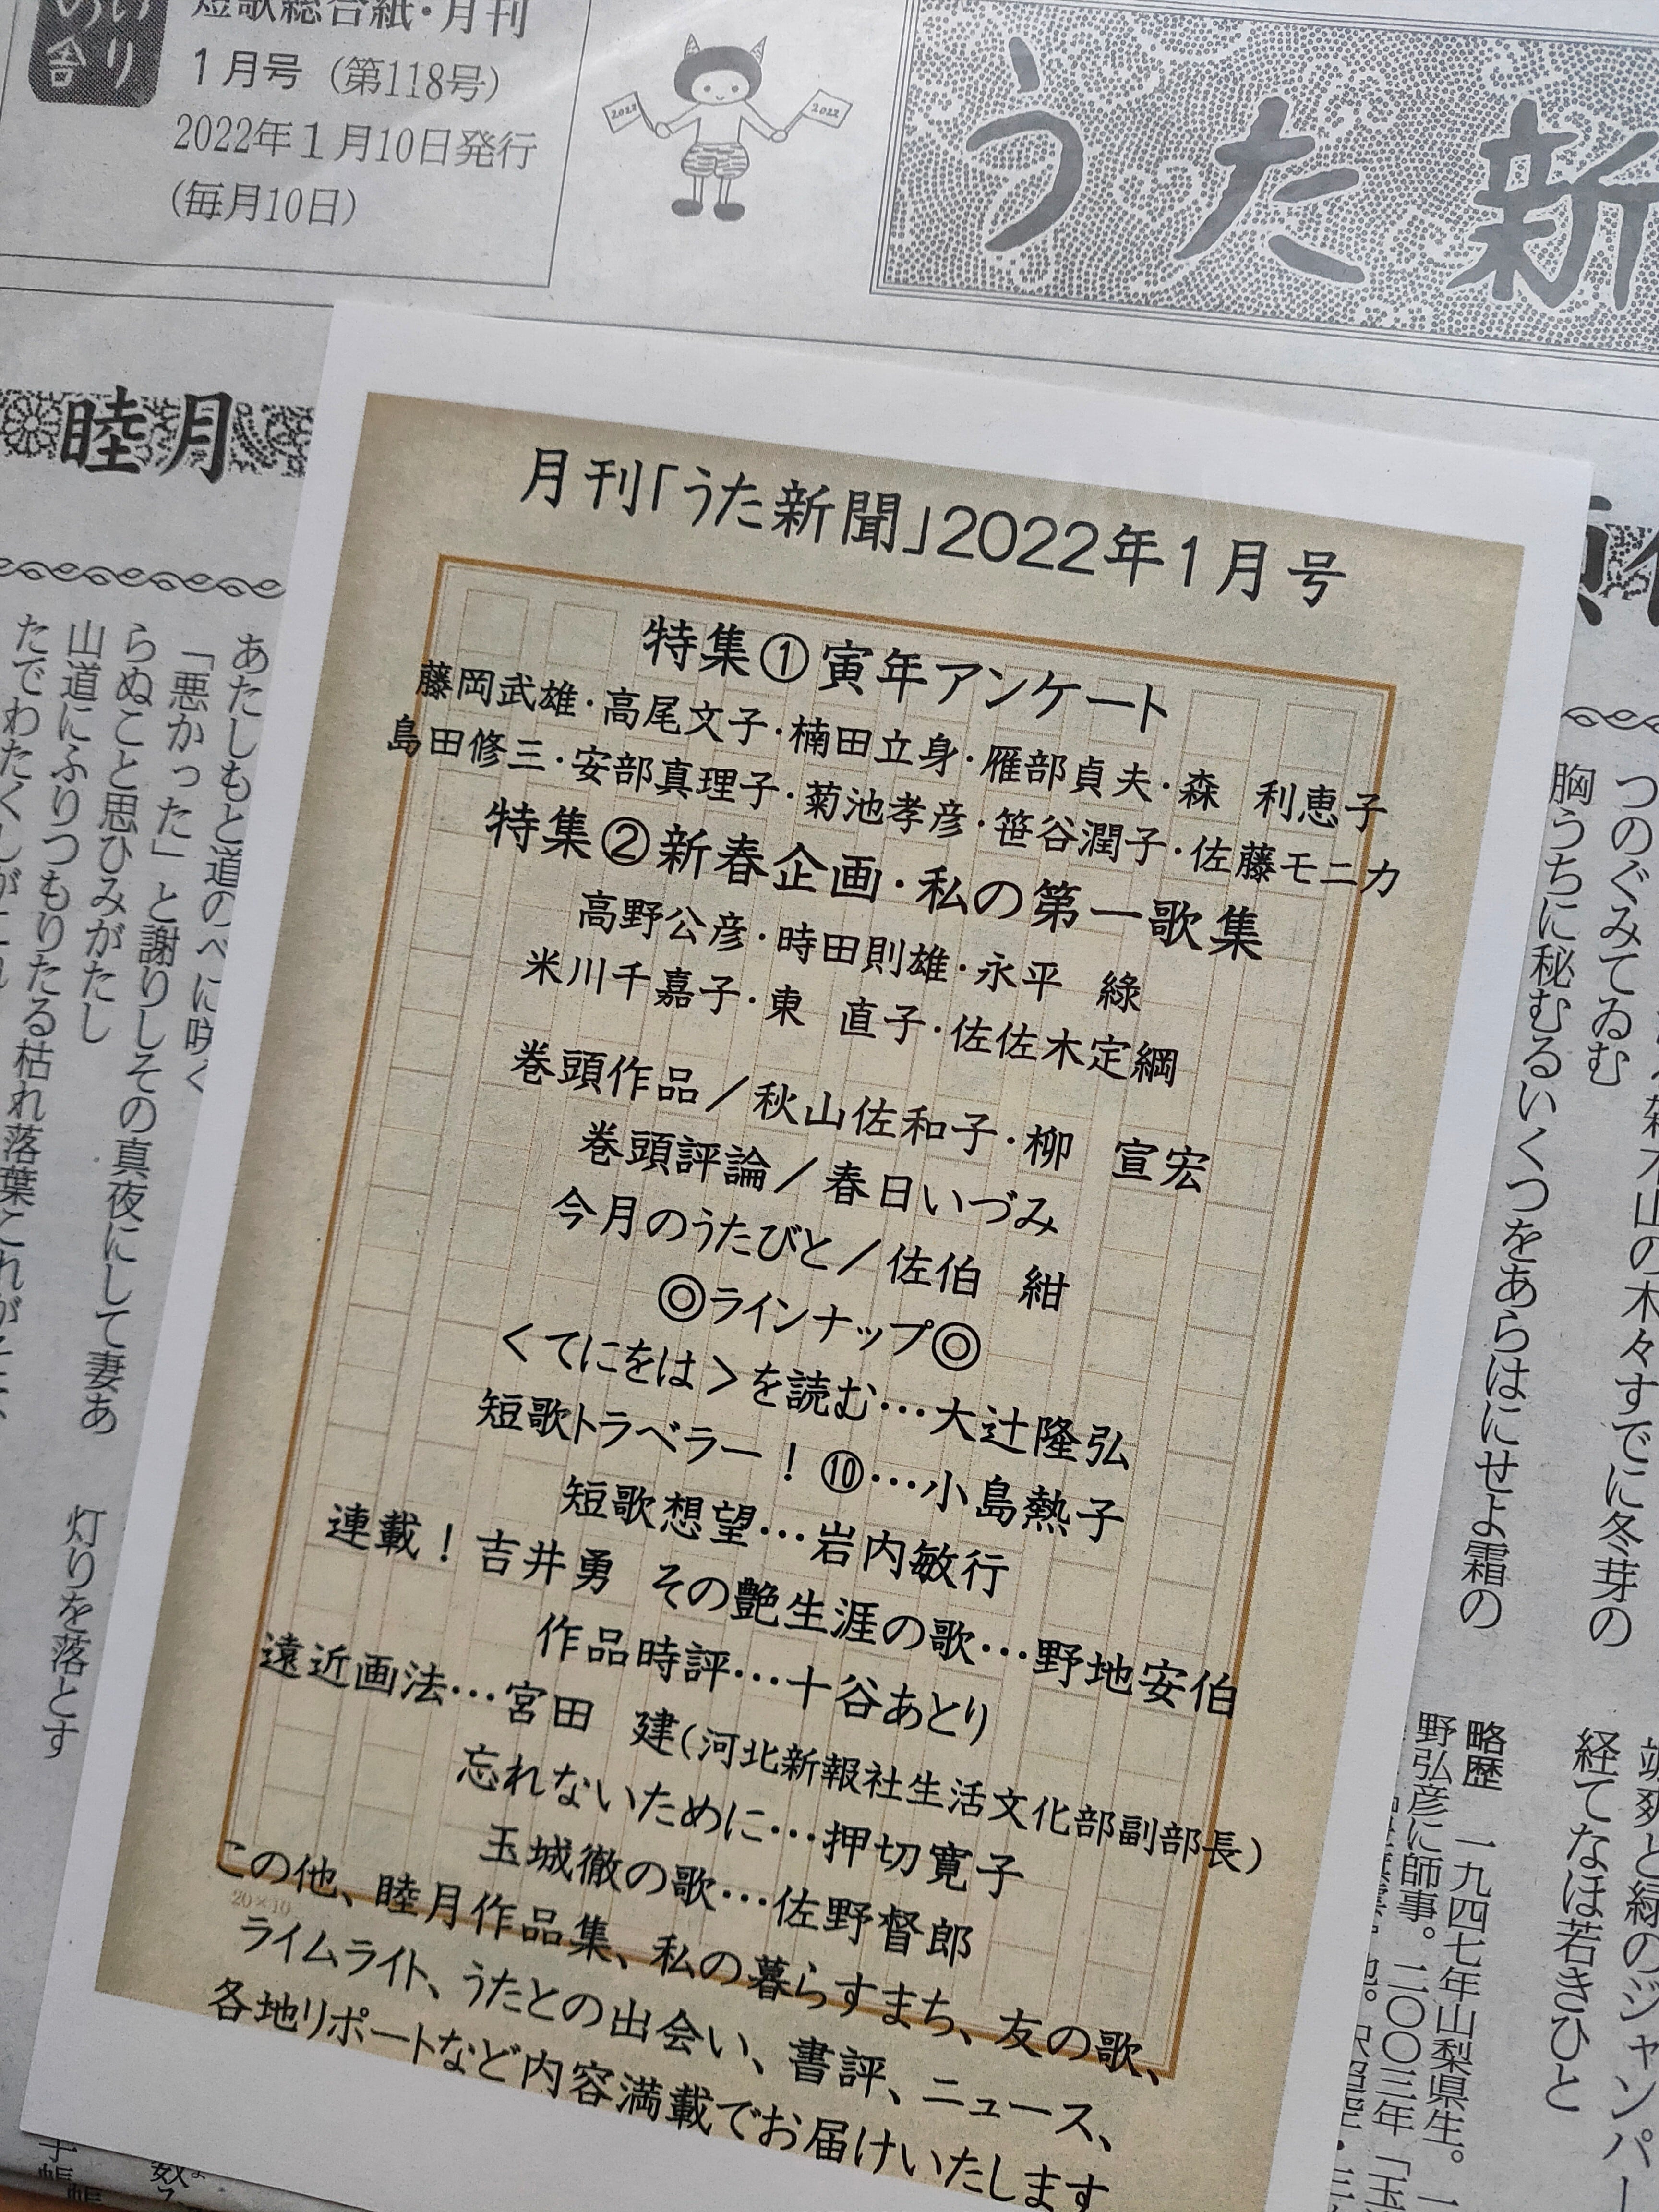 短歌総合紙・月刊
1月号（第118号）
2022年1月10日発行
(毎月10日)
2022
うた新
睦月
月刊「うた新聞」2022年1月号
特集①寅年アンケート
藤岡武雄・高尾文子・楠田立身・雁部貞夫・森　利恵子
島田修三・安部真理子・菊池孝彦・笹谷潤子・佐藤モニカ
特集②新春企画・私の第一歌集
高野公彦・時田則雄・永平　綠
米川千嘉子・東　直子・佐佐木定綱
巻頭作品／秋山佐和子・柳　宣宏
巻頭評論／春日いづみ
今月のうたびと／佐伯　紺
◎ラインナップ◎
＜てにをは＞を読む…大辻隆弘
短歌トラベラー！⑩…小島熱子
短歌想望…岩内敏行
連載！吉井勇　その艶生涯の歌…野地安伯
作品時評…十谷あとり
遠近画法…宮田　建(河北新報社生活文化部副部長)
忘れないために…押切寛子
玉城徹の歌…佐野督郎
この他、睦月作品集、私の暮らすまち、友の歌、
ライムライト、うたとの出会い、書評、ニュース、
各地リポートなど内容満載でお届けいたします
20×10
つのぐみてゐむ
胸うちに秘むるいくつをあらはにせよ霜の
木山の木々すでに冬芽の
緑のジャンパー
経てなほ若きひと
略歴　一九四七年山梨県生。
野弘彦に師事。二〇〇三年「玉
あたしもと道のべに咲く
「悪かった」と謝りしその真夜にして妻あ
らぬこと思ひみがたし
山道にふりつもりたる枯れ落葉これが
たでわたくしが
灯りを落とす